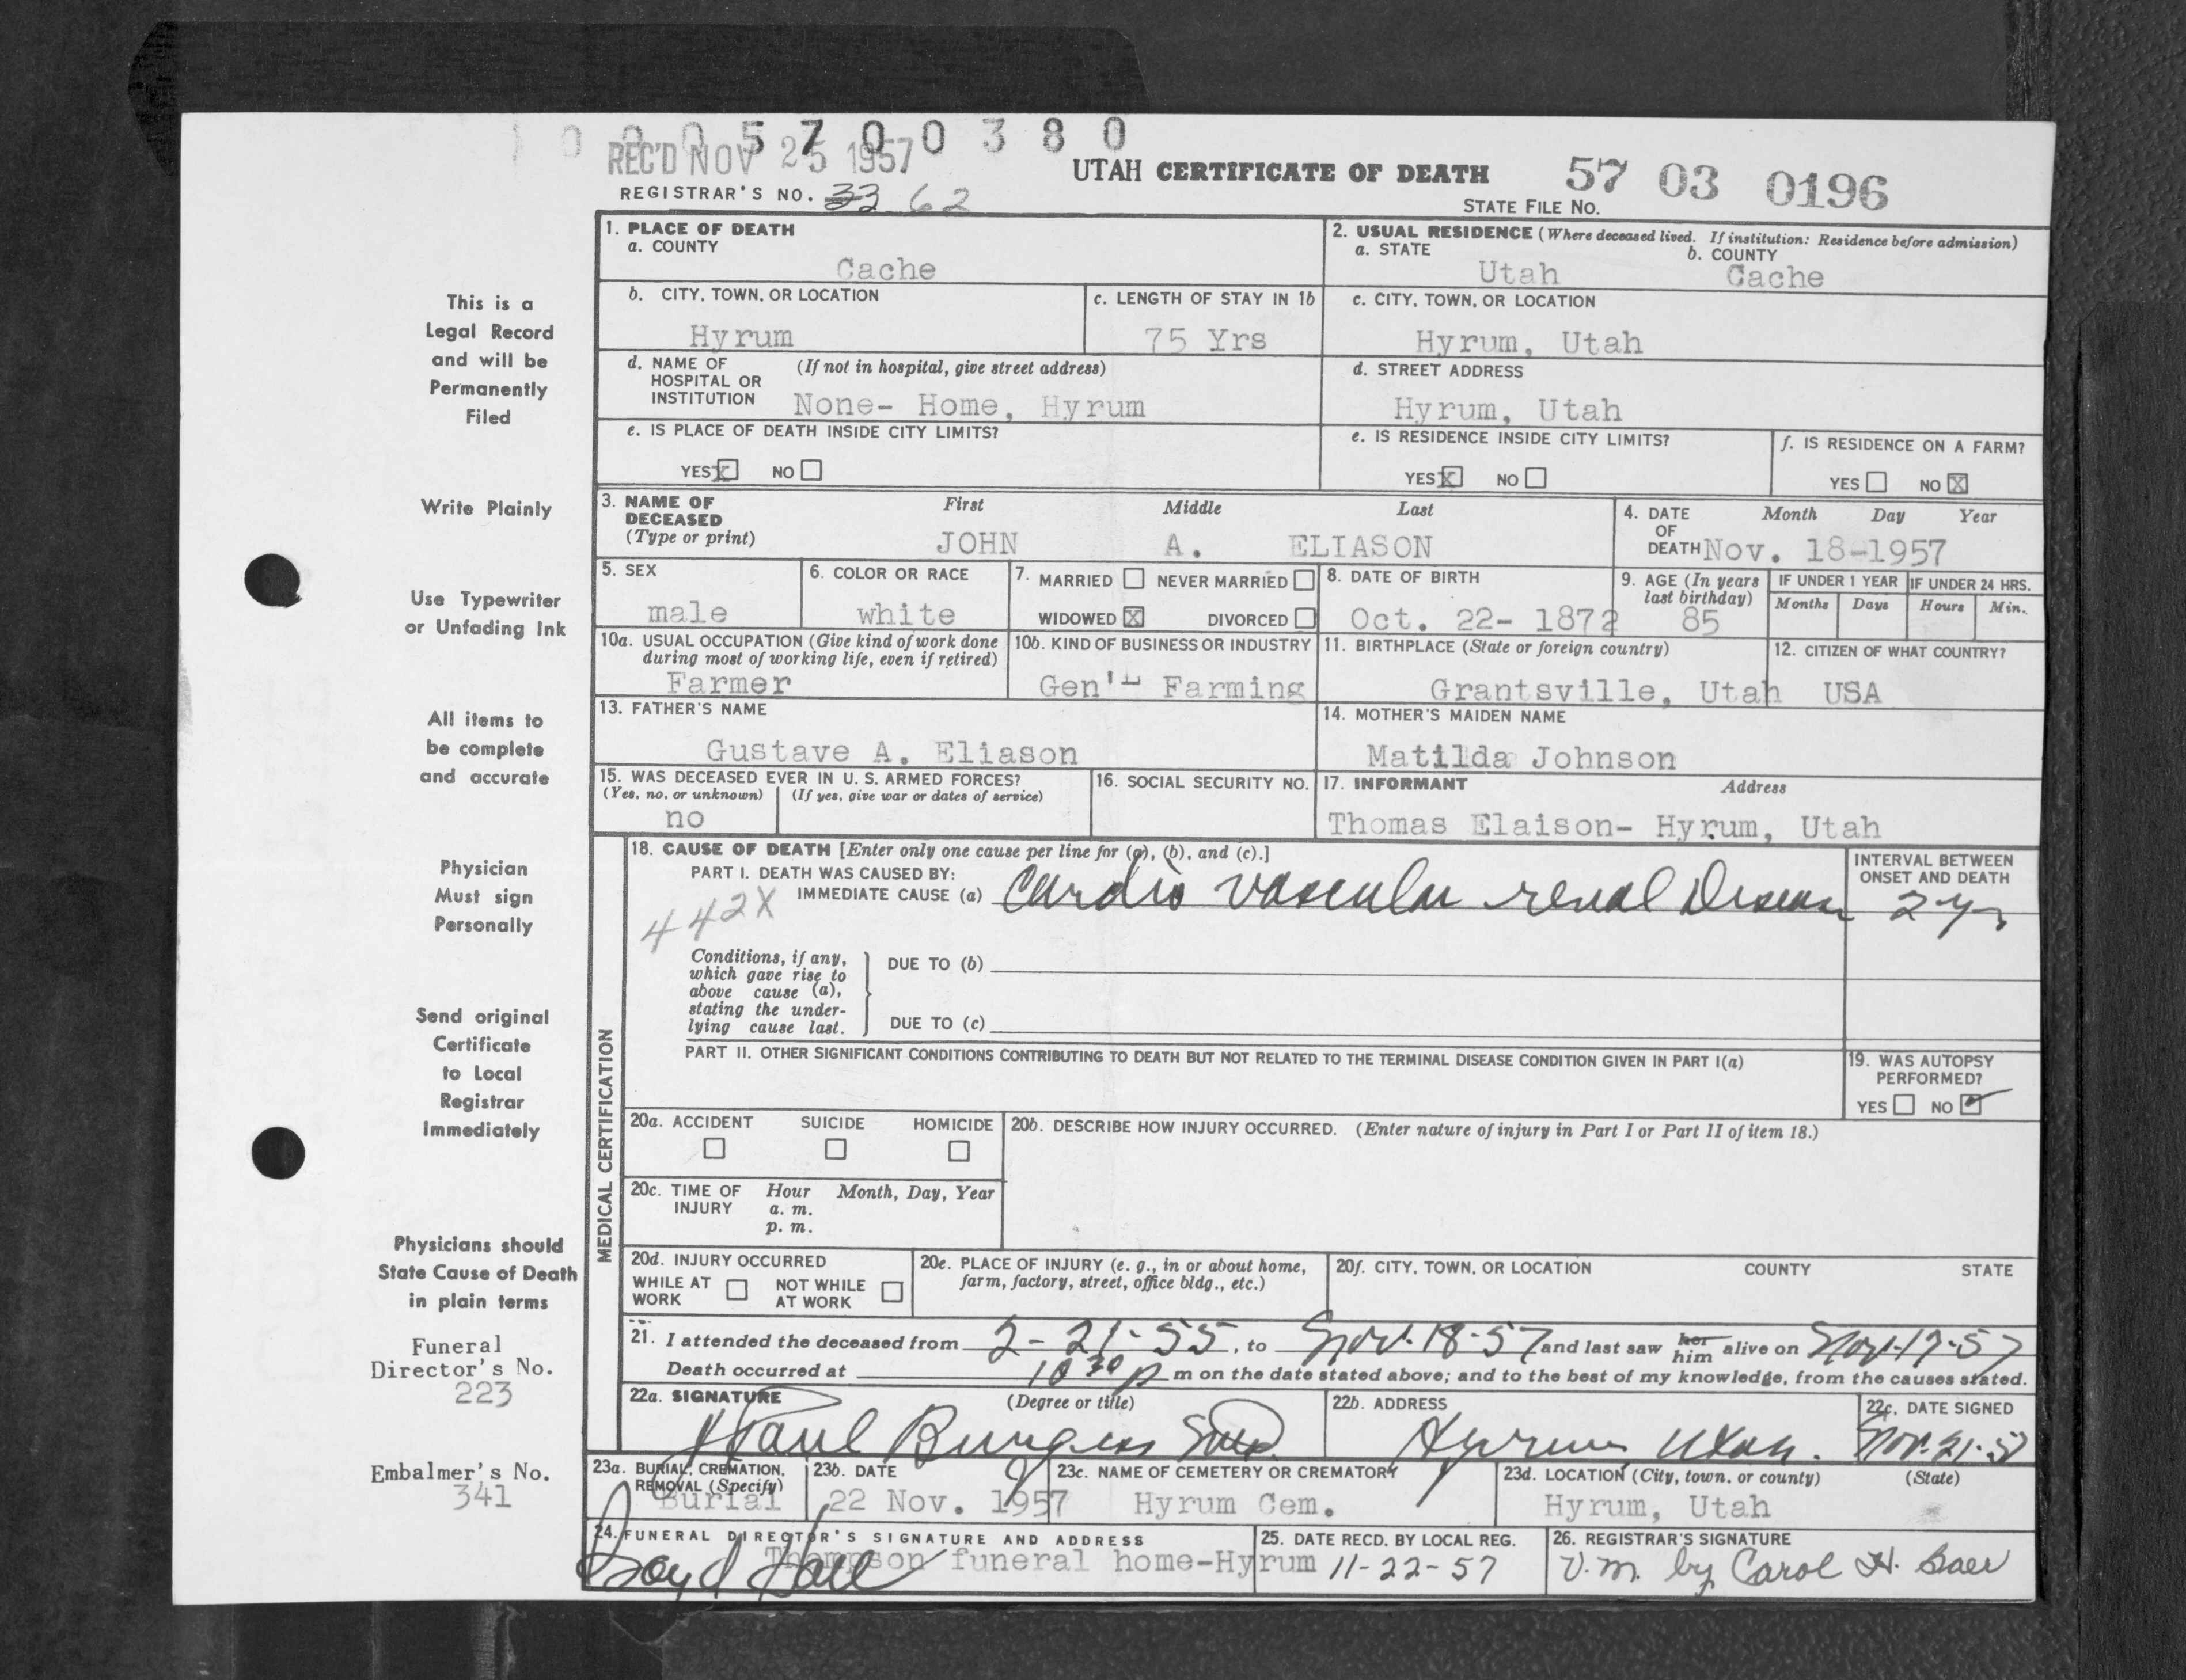 0 0 0 5 7 0 0 3 8 0
REC'D NOV 25 1957
UTAH CERTIFICATE OF DEATH
57 03 0196
REGISTRAR'S NO. 33 62
STATE FILE NO.
1. PLACE OF DEATH
a. COUNTY
Cache
2. USUAL RESIDENCE (Where deceased lived. If institution: Residence before admission)
a. STATE
Utah
b. COUNTY
Cache
b. CITY, TOWN, OR LOCATION
Hyrum
c. LENGTH OF STAY IN 1b
75 Yrs
c. CITY, TOWN, OR LOCATION
Hyrum, Utah
d. NAME OF HOSPITAL OR INSTITUTION
(If not in hospital, give street address)
None- Home, Hyrum
d. STREET ADDRESS
Hyrum, Utah
e. IS PLACE OF DEATH INSIDE CITY LIMITS?
YES X NO
e. IS RESIDENCE INSIDE CITY LIMITS?
YES X NO
f. IS RESIDENCE ON A FARM?
YES NO X
3. NAME OF DECEASED
(Type or print)
First
Middle
Last
JOHN A. ELIASON
4. DATE OF DEATH
Month Day Year
Nov. 18-1957
5. SEX
male
6. COLOR OR RACE
white
7. MARRIED NEVER MARRIED
WIDOWED X DIVORCED
8. DATE OF BIRTH
Oct. 22- 1872
9. AGE (In years last birthday)
85
IF UNDER 1 YEAR
Months Days
IF UNDER 24 HRS.
Hours Min.
10a. USUAL OCCUPATION (Give kind of work done during most of working life, even if retired)
Farmer
10b. KIND OF BUSINESS OR INDUSTRY
Gen'L Farming
11. BIRTHPLACE (State or foreign country)
Grantsville, Utah
12. CITIZEN OF WHAT COUNTRY?
USA
13. FATHER'S NAME
Gustave A. Eliason
14. MOTHER'S MAIDEN NAME
Matilda Johnson
15. WAS DECEASED EVER IN U. S. ARMED FORCES?
(Yes, no, or unknown)
(If yes, give war or dates of service)
no
16. SOCIAL SECURITY NO.
17. INFORMANT
Address
Thomas Elaison- Hyrum, Utah
MEDICAL CERTIFICATION
18. CAUSE OF DEATH [Enter only one cause per line for (a), (b), and (c).]
PART I. DEATH WAS CAUSED BY:
IMMEDIATE CAUSE (a) Cardio Vascular renal Disease
442X
INTERVAL BETWEEN ONSET AND DEATH
2 yr
Conditions, if any, which gave rise to above cause (a), stating the underlying cause last.
DUE TO (b)
DUE TO (c)
PART II. OTHER SIGNIFICANT CONDITIONS CONTRIBUTING TO DEATH BUT NOT RELATED TO THE TERMINAL DISEASE CONDITION GIVEN IN PART I(a)
19. WAS AUTOPSY PERFORMED?
YES NO
20a. ACCIDENT SUICIDE HOMICIDE
20b. DESCRIBE HOW INJURY OCCURRED. (Enter nature of injury in Part I or Part II of item 18.)
20c. TIME OF INJURY
Hour Month, Day, Year
a. m.
p. m.
20d. INJURY OCCURRED
WHILE AT WORK
NOT WHILE AT WORK
20e. PLACE OF INJURY (e. g., in or about home, farm, factory, street, office bldg., etc.)
20f. CITY, TOWN, OR LOCATION COUNTY STATE
21. I attended the deceased from 2-21-55, to Nov. 18-57 and last saw her him alive on Nov. 17-57
Death occurred at 10 30 p m on the date stated above; and to the best of my knowledge, from the causes stated.
22a. SIGNATURE
(Degree or title)
Paul Burgess M.D.
22b. ADDRESS
Hyrum, Utah.
22c. DATE SIGNED
Nov. 21-57
23a. BURIAL, CREMATION, REMOVAL (Specify)
Burial
23b. DATE
22 Nov. 1957
23c. NAME OF CEMETERY OR CREMATORY
Hyrum Cem.
23d. LOCATION (City, town, or county) (State)
Hyrum, Utah
24. FUNERAL DIRECTOR'S SIGNATURE AND ADDRESS
Thompson funeral home-Hyrum
Boyd Hall
25. DATE RECD. BY LOCAL REG.
11-22-57
26. REGISTRAR'S SIGNATURE
V.M. by Carol H. Baer
This is a
Legal Record
and will be
Permanently
Filed
Write Plainly
Use Typewriter
or Unfading Ink
All items to
be complete
and accurate
Physician
Must sign
Personally
Send original
Certificate
to Local
Registrar
Immediately
Physicians should
State Cause of Death
in plain terms
Funeral
Director's No.
223
Embalmer's No.
341